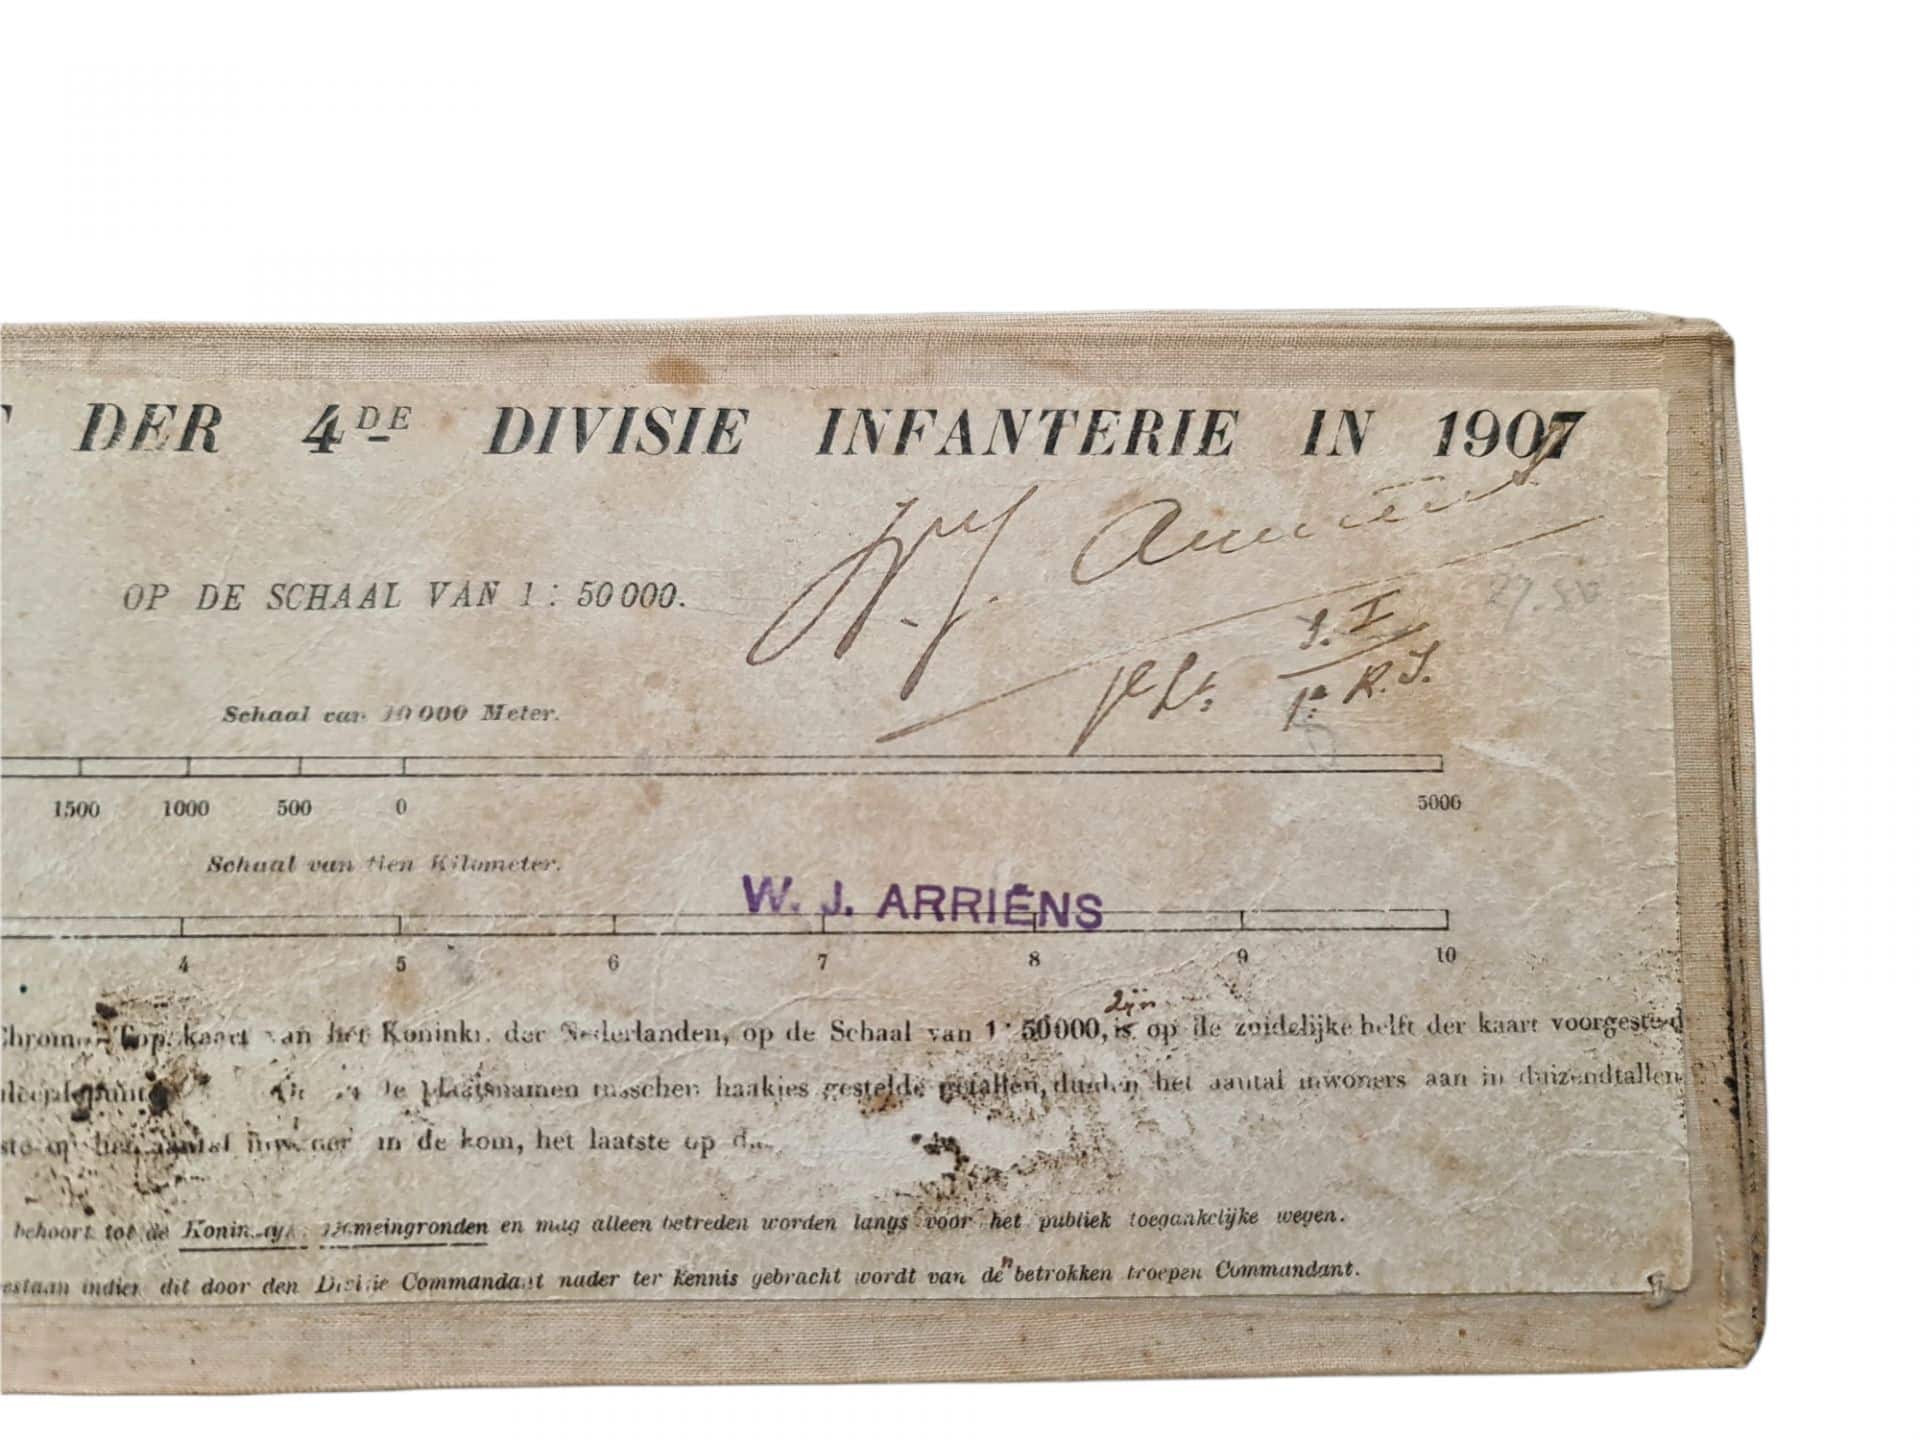 DER 4DE DIVISIE INFANTERIE IN 1907
W.J. Arriëns
OP DE SCHAAL VAN 1 : 50 000.
27.50
1e Lt. 1e R.I.
Schaal van 10 000 Meter.
1500 1000 500 0 5000
Schaal van tien Kilometer.
W. J. ARRIËNS
4 5 6 7 8 9 10
zijn
kaart van het Koninkr. der Nederlanden, op de Schaal van 1 : 50 000, is op de zuidelijke helft der kaart voorgesteld
de plaatsnamen tusschen haakjes gestelde getallen, duiden het aantal inwoners aan in duizendtallen
op het aantal in de kom, het laatste op
behoort tot de Domeingronden en mag alleen betreden worden langs voor het publiek toegankelijke wegen.
indien dit door den Divisie Commandant nader ter kennis gebracht wordt van den betrokken troepen Commandant.